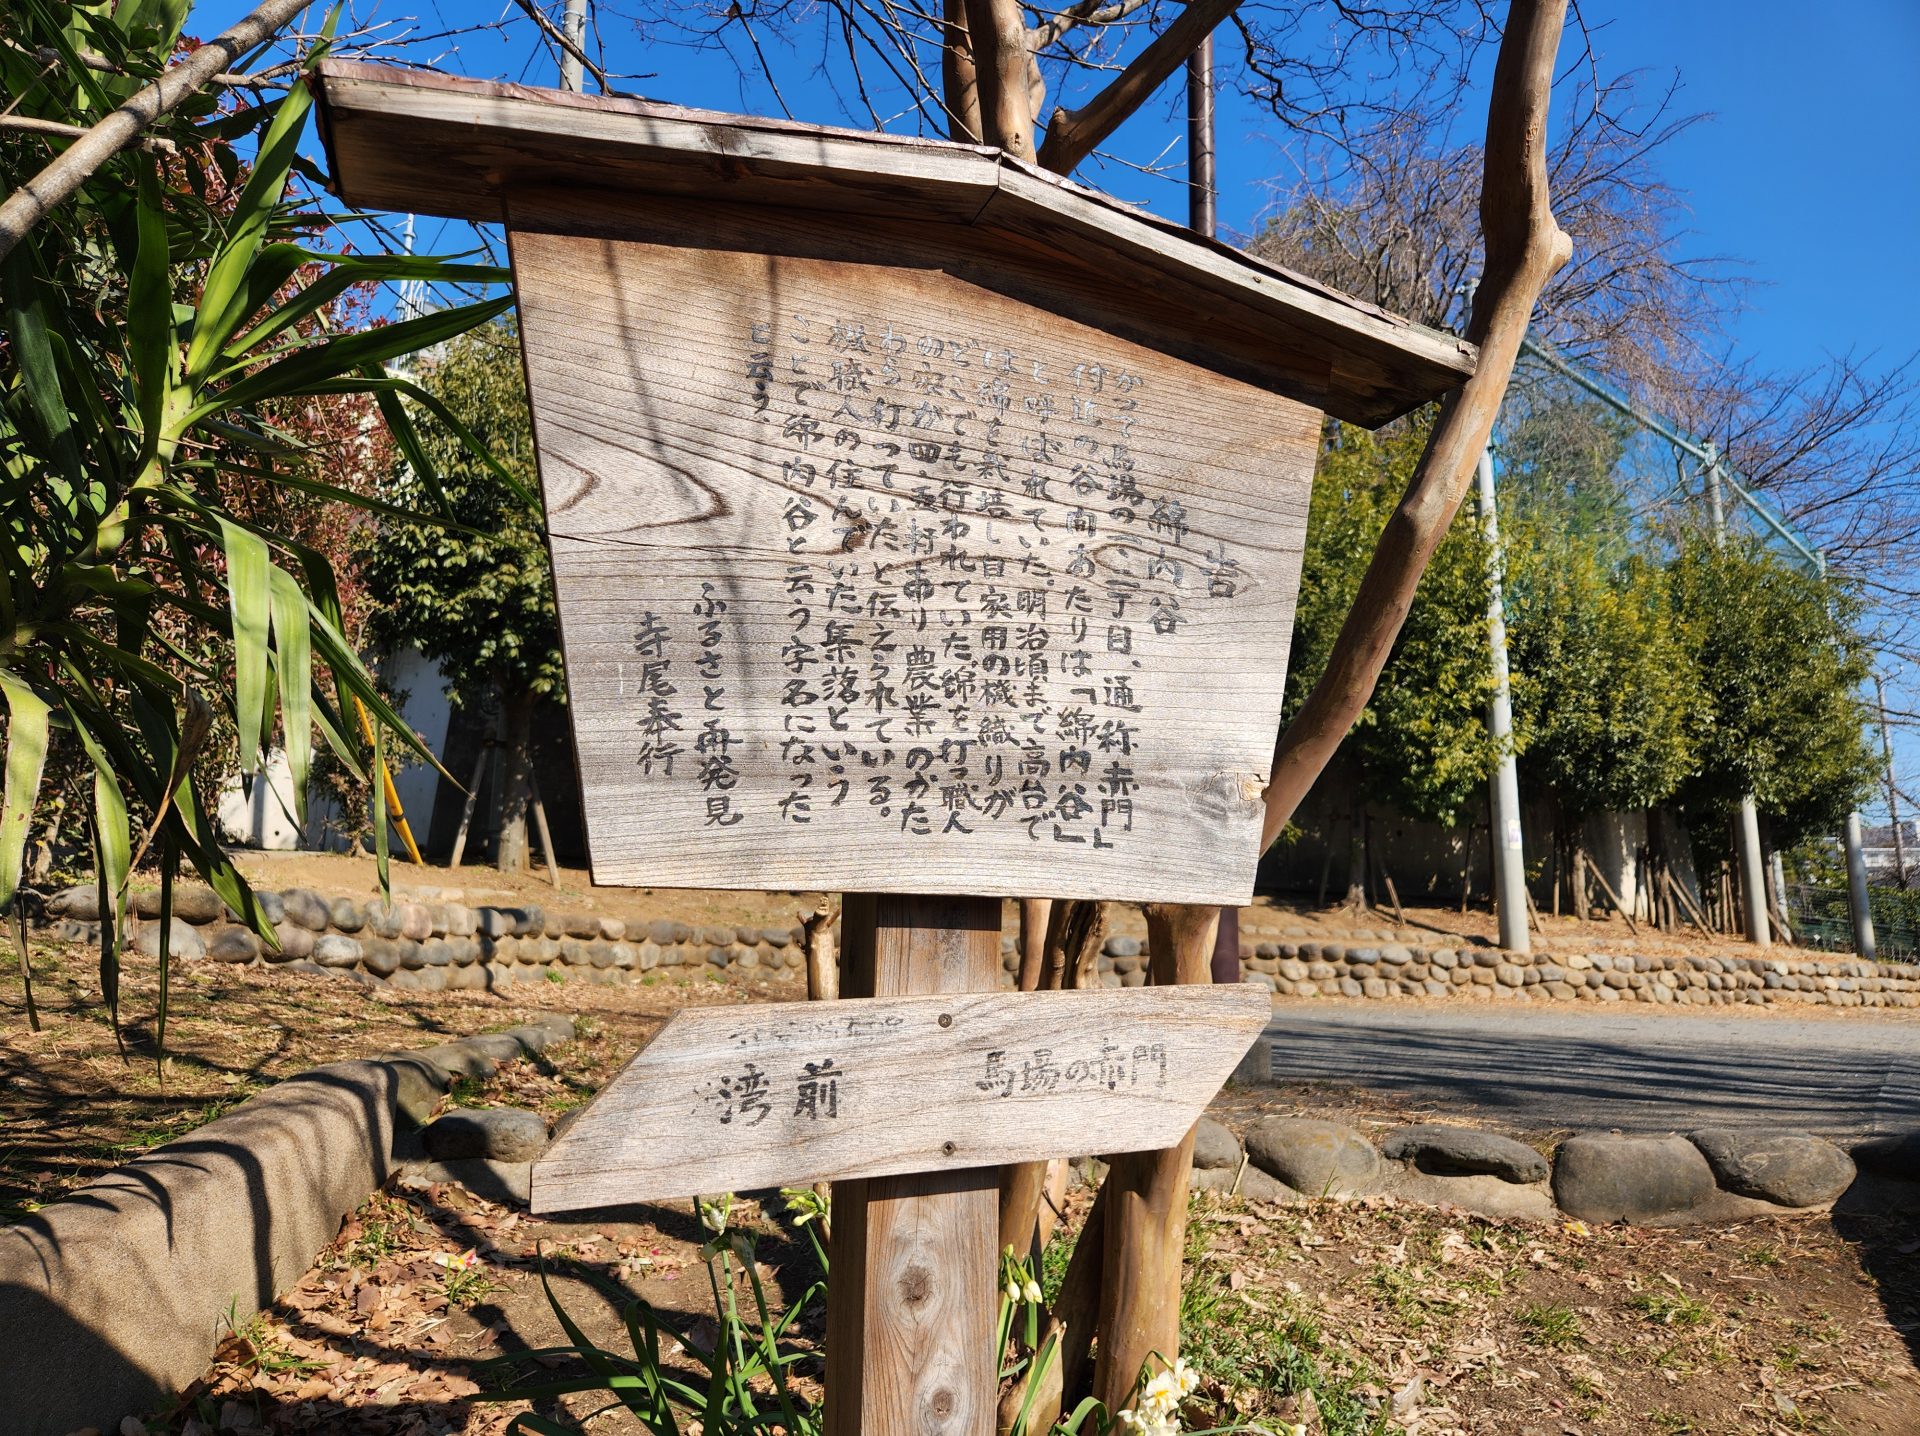 吉
綿内谷
かつて馬場の一、二丁目、通称赤門
付近の谷向あたりは「綿内谷」
と呼ばれていた。明治頃まで高台で
は綿を栽培し自家用の機織りが
どこでも行われていた。綿を打つ職人
の家が四、五軒あり農業のかた
わら打っていたと伝えられている。
機職人の住んでいた集落という
ことで綿内谷と云う字名になった
と云う。
ふるさと再発見
寺尾奉行
湾前
馬場の赤門